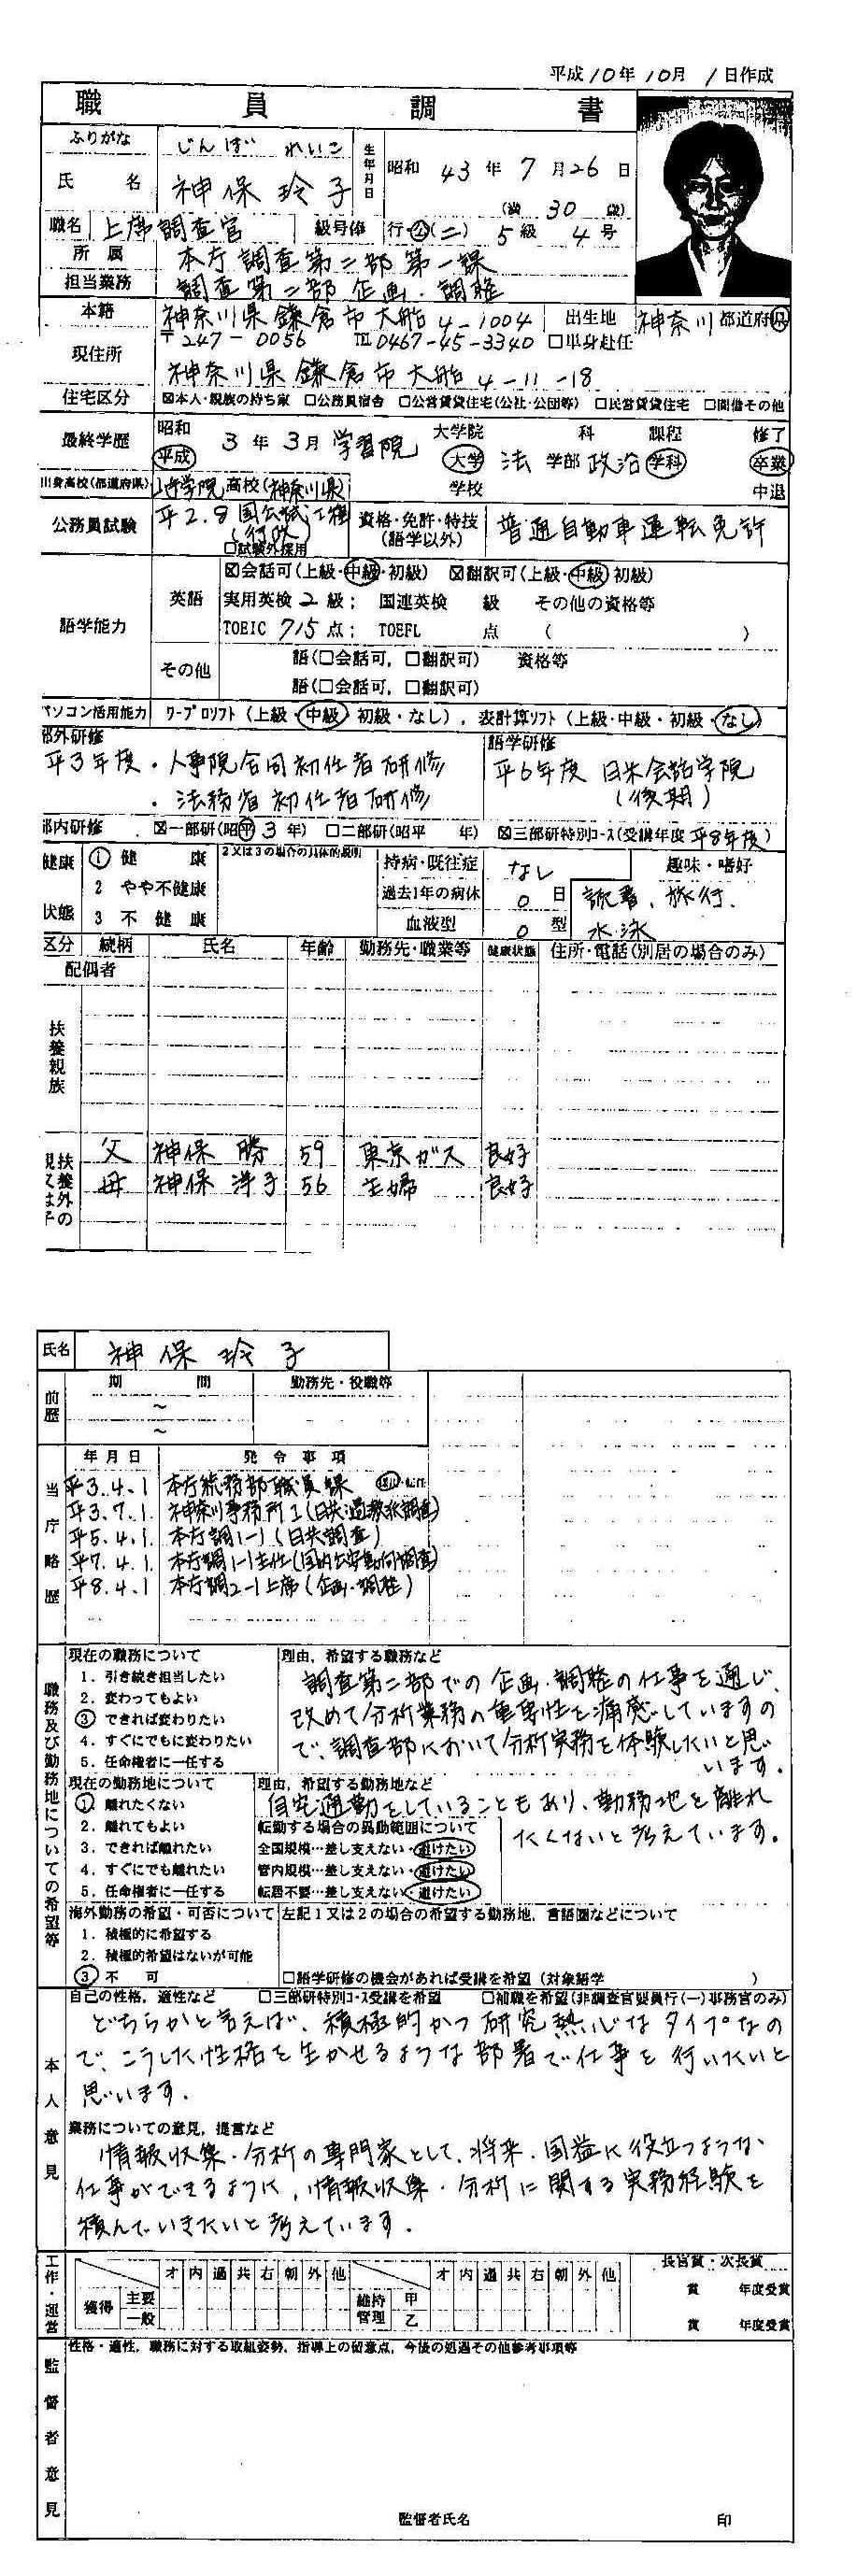 平成10年10月1日作成
職員調書
ふりがな じんぼ れいこ
氏名 神保玲子
生年月日 昭和43年7月26日
(満30歳)
職名 上席調査官 級号俸 行公(二) 5級 4号
所属 本庁調査第二部第一課
担当業務 調査第二部企画・調整
本籍 神奈川県鎌倉市大船4-1004 出生地 神奈川 都道府県
現住所 〒247-0056 TEL 0467-45-3340 □単身赴任
神奈川県鎌倉市大船4-11-18
住宅区分 ☒本人・親族の持ち家 □公務員宿舎 □公営賃貸住宅(公社・公団等) □民営賃貸住宅 □間借その他
最終学歴 昭和 平成 3年3月 学習院 大学院 大学 学校 法 学部 政治 学科 科 課程 修了 卒業 中退
出身高校(都道府県) 学院高校(神奈川県)
公務員試験 平2.8国公
□試験外採用
資格・免許・特技(語学以外) 普通自動車運転免許
語学能力 英語 ☒会話可(上級・中級・初級) ☒翻訳可(上級・中級・初級)
実用英検2級; 国連英検 級 その他の資格等
TOEIC 715点; TOEFL 点 ( )
その他 語(□会話可,□翻訳可) 資格等
語(□会話可,□翻訳可)
パソコン活用能力 ワープロソフト(上級・中級・初級・なし),表計算ソフト(上級・中級・初級・なし)
部外研修 語学研修
平3年度・人事院合同初任者研修 平6年度 日米会話学院
・法務省初任者研修 (後期)
部内研修 ☒一部研(昭平3年) □二部研(昭平 年) ☒三部研特別コース(受講年度 平8年度)
健康状態 1 健康 2又は3の場合の具体的説明
2 やや不健康
3 不健康
持病・既往症 なし
過去1年の病休 0日
血液型 O型
趣味・嗜好
読書、旅行、
水泳
区分 続柄 氏名 年齢 勤務先・職業等 健康状態 住所・電話(別居の場合のみ)
配偶者
扶養親族
扶養外の親又は子
父 神保 勝 59 東京ガス 良好
母 神保 洋子 56 主婦 良好
氏名 神保玲子
前歴 期間 勤務先・役職等
~
~
当庁略歴 年月日 発令事項
平3.4.1 本庁総務部職員課
平3.7.1 神奈川事務所I(日共・過激派調査)
平5.4.1 本庁調1-1(日共調査)
平7.4.1 本庁調1-1主任(国内公安動向調査)
平8.4.1 本庁調2-1上席(企画・調整)
職務及び勤務地についての希望等
現在の職務について 理由,希望する職務など
1.引き続き担当したい
2.変わってもよい
3 できれば変わりたい
4.すぐにでもに変わりたい
5.任命権者に一任する
調査第二部での企画・調整の仕事を通じ、
改めて分析業務の重要性を痛感していますの
で、調査部において分析実務を体験したいと思い
います。
現在の勤務地について 理由,希望する勤務地など
1.離れたくない
2.離れてもよい
3.できれば離れたい
4.すぐにでも離れたい
5.任命権者に一任する
自宅通勤をしていることもあり、勤務地を離れ
たくないと考えています。
転勤する場合の異動範囲について
全国規模…差し支えない・避けたい
管内規模…差し支えない・避けたい
転居不要…差し支えない・避けたい
海外勤務の希望・可否について 左記1又は2の場合の希望する勤務地,言語圏などについて
1.積極的に希望する
2.積極的希望はないが可能
3 不可 □語学研修の機会があれば受講を希望(対象語学 )
本人意見
自己の性格,適性など □三部研特別コース受講を希望 □初職を希望(非調査官要員行(一)事務官のみ)
どちらかと言えば、積極的かつ研究熱心なタイプなの
で、こうした性格を生かせるような部署で仕事を行いたいと
思います。
業務についての意見,提言など
情報収集・分析の専門家として、将来、国益に役立つような
仕事ができるように、情報収集・分析に関する実務経験を
積んでいきたいと考えています。
工作・運営
オ 内 過 共 右 朝 外 他 オ 内 過 共 右 朝 外 他
獲得 主要 一般 維持管理 甲 乙
長官賞・次長賞
賞 年度受賞
賞 年度受賞
監督者意見
性格・適性,職務に対する取組姿勢,指導上の留意点,今後の処遇その他参考事項等
監督者氏名 印